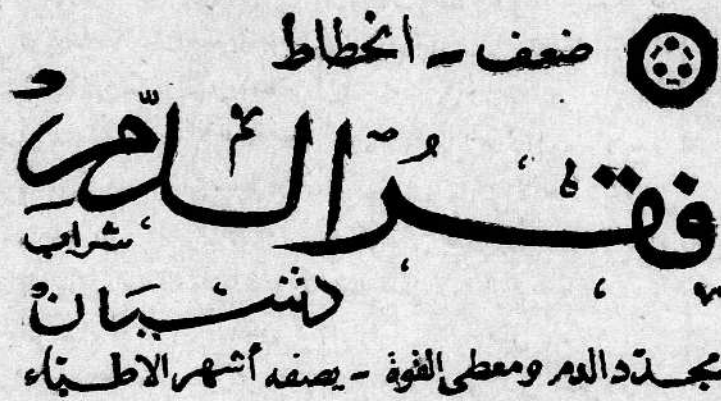 ضعف - انحطاط
فقرُ الدّمِ
شراب
دشيَان
مجدّد الدم ومعطى القوة - يصفه أشهر الاطباء